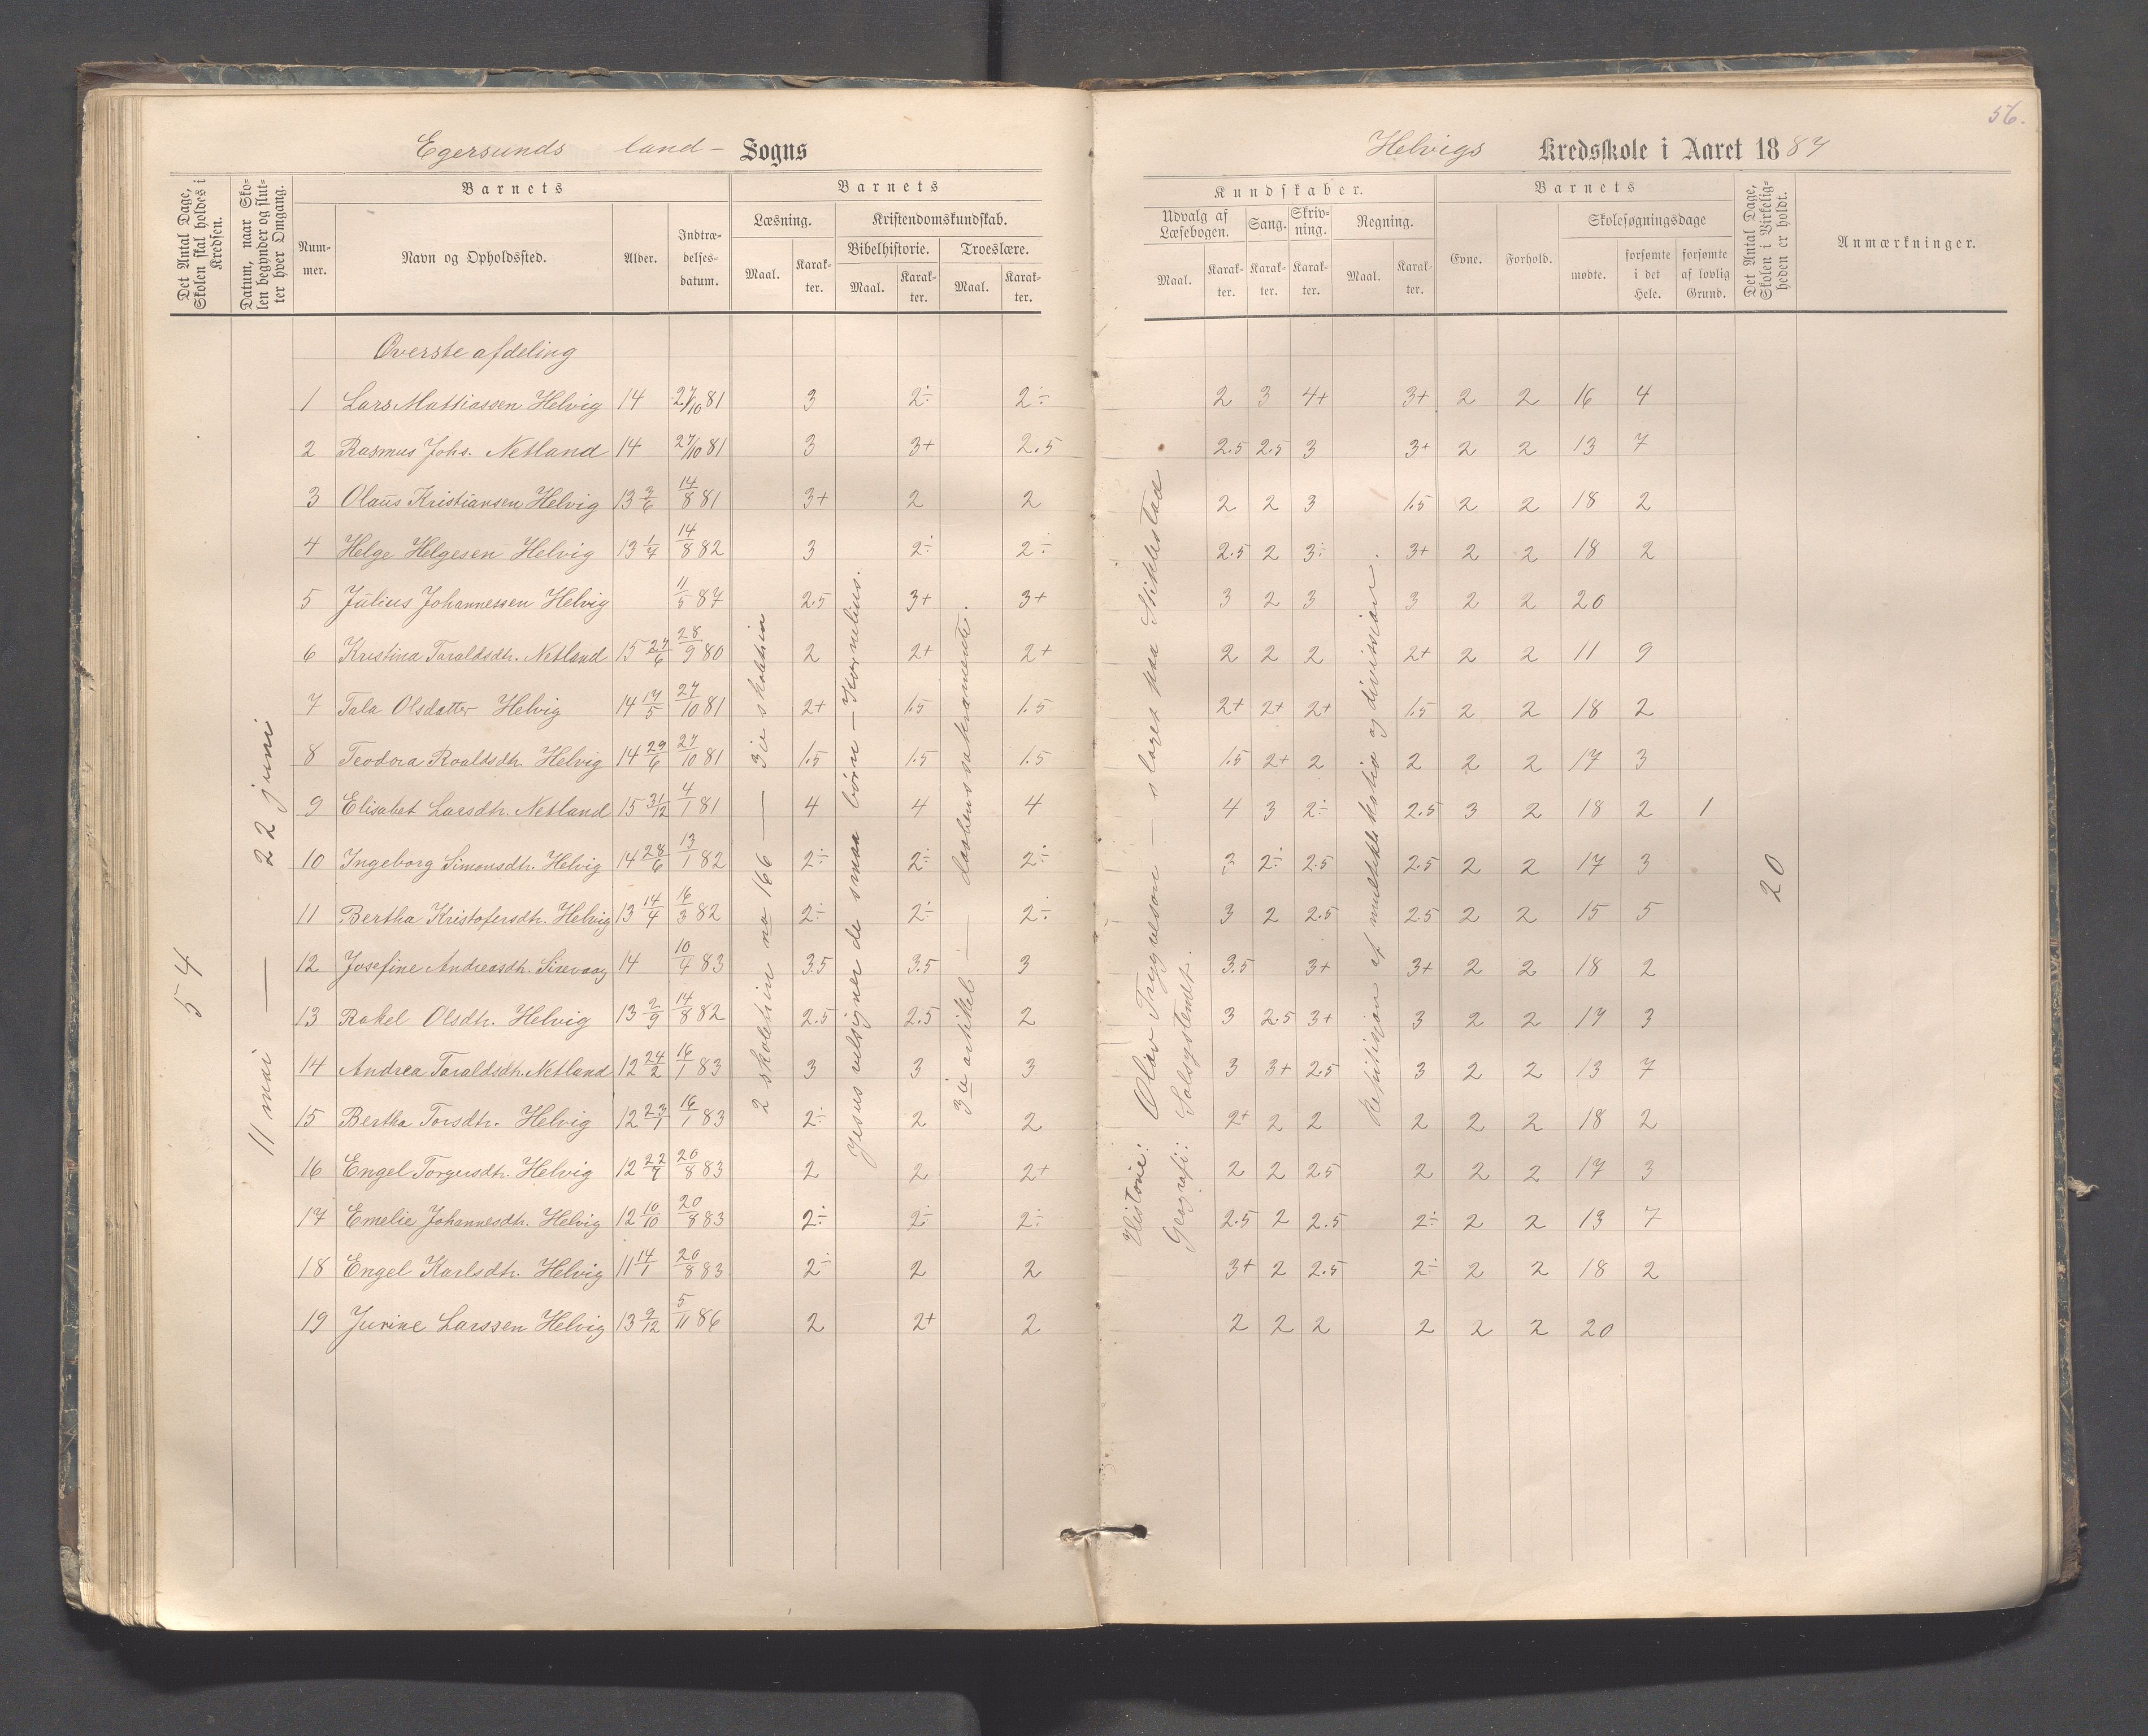 56.
Egersunds land- Sogns
Helvigs Kredsskole i Aaret 1887
Det Antal Dage, Skolen skal holdes i Kredsen.
Datum, naar Skolen begynder og slutter hver Omgang.
Barnets
Nummer.
Navn og Opholdssted.
Alder.
Indtrædelsesdatum.
Barnets
Læsning.
Kristendomskundskab.
Bibelhistorie.
Troeslære.
Maal.
Karakter.
Maal.
Karakter.
Maal.
Karakter.
Kundskaber.
Udvalg af Læsebogen.
Sang.
Skrivning.
Regning.
Maal.
Karakter.
Karakter.
Karakter.
Maal.
Karakter.
Barnets
Evne.
Forhold.
Skolesøgningsdage
mødte.
forsømte i det Hele.
forsømte af lovlig Grund.
Det Antal Dage, Skolen i Virkeligheden er holdt.
Anmærkninger.
Overste afdeling
1 Lars Mattiassen Helvig 14 27/10 81 3 2÷ 2÷ 2 3 4+ 3+ 2 2 16 4
2 Rasmus Johs. Netland 14 27/10 81 3 3+ 2.5 2.5 2.5 3 3+ 2 2 13 7
3 Olaus Kristiansen Helvig 13 3/6 14/8 81 3+ 2 2 2 2 3 1.5 2 2 18 2
4 Helge Helgesen Helvig 13 1/4 14/8 82 3 2÷ 2÷ 2.5 2 3÷ 3+ 2 2 18 2
5 Julius Johannessen Helvig 11/5 87 2.5 3+ 3+ 3 2 3 3 2 2 20
6 Kristina Taraldsdtr. Netland 15 27/6 28/9 80 2 2+ 2+ 2 2 2 2+ 2 2 11 9
7 Tala Olsdatter Helvig 14 17/5 27/10 81 2+ 1.5 1.5 2+ 2+ 2+ 1.5 2 2 18 2
8 Teodora Roaldsdtr. Helvig 14 29/6 27/10 81 1.5 1.5 1.5 1.5 2+ 2 2 2 2 17 3
9 Elisabet Larsdtr. Netland 15 31/12 4/1 81 4 4 4 4 3 2÷ 2.5 3 2 18 2 1
10 Ingeborg Simonsdtr. Helvig 14 28/6 13/1 82 2÷ 2÷ 2÷ 3 2÷ 2.5 2.5 2 2 17 3
11 Bertha Kristofersdtr. Helvig 13 14/4 16/3 82 2÷ 2÷ 2÷ 3 2 2.5 2.5 2 2 15 5
12 Josefine Andreasdtr. Sirevaag 14 10/4 83 3.5 3.5 3 3.5 3+ 3+ 2 2 18 2
13 Rakel Olsdtr. Helvig 13 2/9 14/8 82 2.5 2.5 2 3 2.5 3+ 3 2 2 17 3
14 Andrea Taraldsdtr. Netland 12 24/2 16/1 83 3 3 3 3 3+ 2.5 3 2 2 13 7
15 Bertha Torsdtr. Helvig 12 23/1 16/1 83 2÷ 2 2 2+ 2 2 2 2 2 18 2
16 Engel Torgersdtr. Helvig 12 22/7 20/8 83 2 2 2+ 2 2 2.5 2 2 2 17 3
17 Emelie Johannesdtr. Helvig 12 10/10 20/8 83 2÷ 2÷ 2÷ 2.5 2 2.5 2÷ 2 2 13 7
18 Engel Karlsdtr. Helvig 11 14/1 20/8 83 2÷ 2 2 3+ 2 2.5 2÷ 2 2 18 2
19 Jurine Larssen Helvig 13 9/12 5/11 86 2 2+ 2 2 2 2 2 2 2 20
54
11 mai — 22 juni
2 skoletrin no 166 — 3die skoletrin
Jesus velsigner de smaa børn — Kornelius.
3die artikel — daabens sakramente.
Historie: Olav Trygveson — slaget paa Stiklestad
Geografi: Solsystemet.
Repitisjon af multiplikatio og division.
20